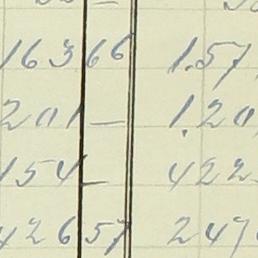 163 66 1.57
201 — 1.20
154 — 422
426 57 247